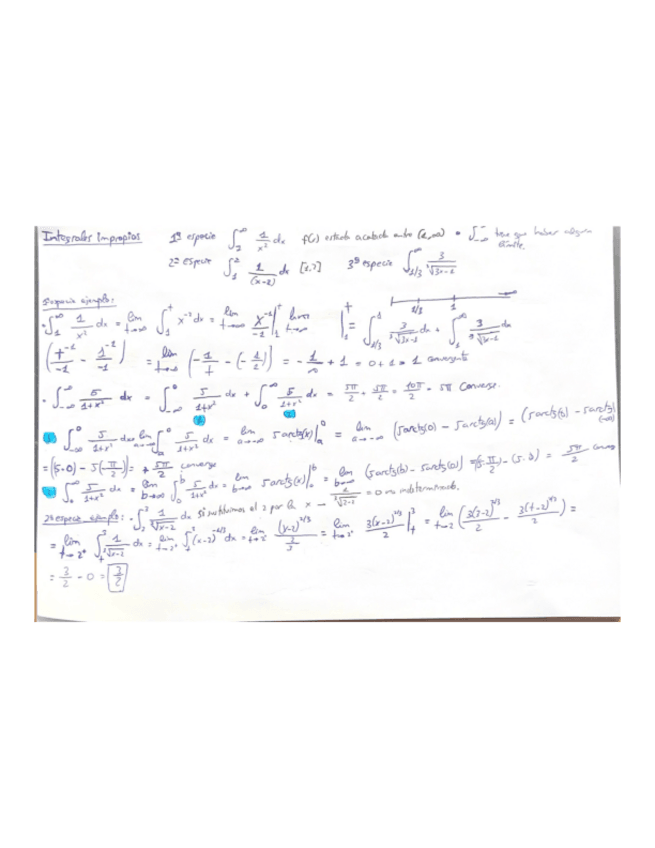 Integrales impropias 1ª especie ∫₂^∞ 1/x² dx f(x) estará acotada entre (2,∞) • ∫₋∞^∞ tiene que haber algún límite.
2ª especie ∫₁² 1/(x-2) dx [1,2] 3ª especie ∫_{1/3}^∞ 3/∛(3x-1)
1ª especie ejemplo:
• ∫₁^∞ 1/x² dx = lim t→∞ ∫₁^t x⁻² dx = lim t→∞ x⁻¹/-1 |₁^t t→∞
1/3 1
∫_{1/3}^1 3/∛(3x-1) dx + ∫₁^∞ 3/∛(3x-1) dx
(t⁻¹/-1 - 1⁻¹/-1) = lim t→∞ (-1/t - (-1/1)) = -1/∞ + 1 = 0 + 1 = 1 convergente
• ∫₋∞^∞ 5/(1+x²) dx = ∫₋∞^0 5/(1+x²) dx + ∫₀^∞ 5/(1+x²) dx = 5π/2 + 5π/2 = 10π/2 = 5π Converge.
1 2
1 ∫₋∞^0 5/(1+x²) dx = lim a→-∞ ∫_a^0 5/(1+x²) dx = lim a→-∞ 5 arctg(x)|_a^0 = lim a→-∞ (5arctg(0) - 5arctg(a)) = (5arctg(0) - 5arctg(-∞))
= (5·0) - 5(-π/2) = + 5π/2 converge
2 ∫₀^∞ 5/(1+x²) dx = lim b→∞ ∫₀^b 5/(1+x²) dx = lim b→∞ 5arctg(x)|₀^b = lim b→∞ (5arctg(b) - 5arctg(0)) = (5·π/2) - (5·0) = 5π/2
2ª especie ejemplo: • ∫₂³ 1/∛(x-2) dx Si sustituimos el 2 por la x → 1/∛(2-2) = 0 indeterminado.
= lim t→2⁺ ∫_t^3 1/∛(x-2) dx = lim t→2⁺ ∫_t^3 (x-2)^{-1/3} dx = lim t→2⁺ (x-2)^{2/3}/(2/3) = lim t→2⁺ 3(x-2)^{2/3}/2 |_t^3 = lim t→2 (3(3-2)^{2/3}/2 - 3(t-2)^{2/3}/2) =
= 3/2 - 0 = 3/2